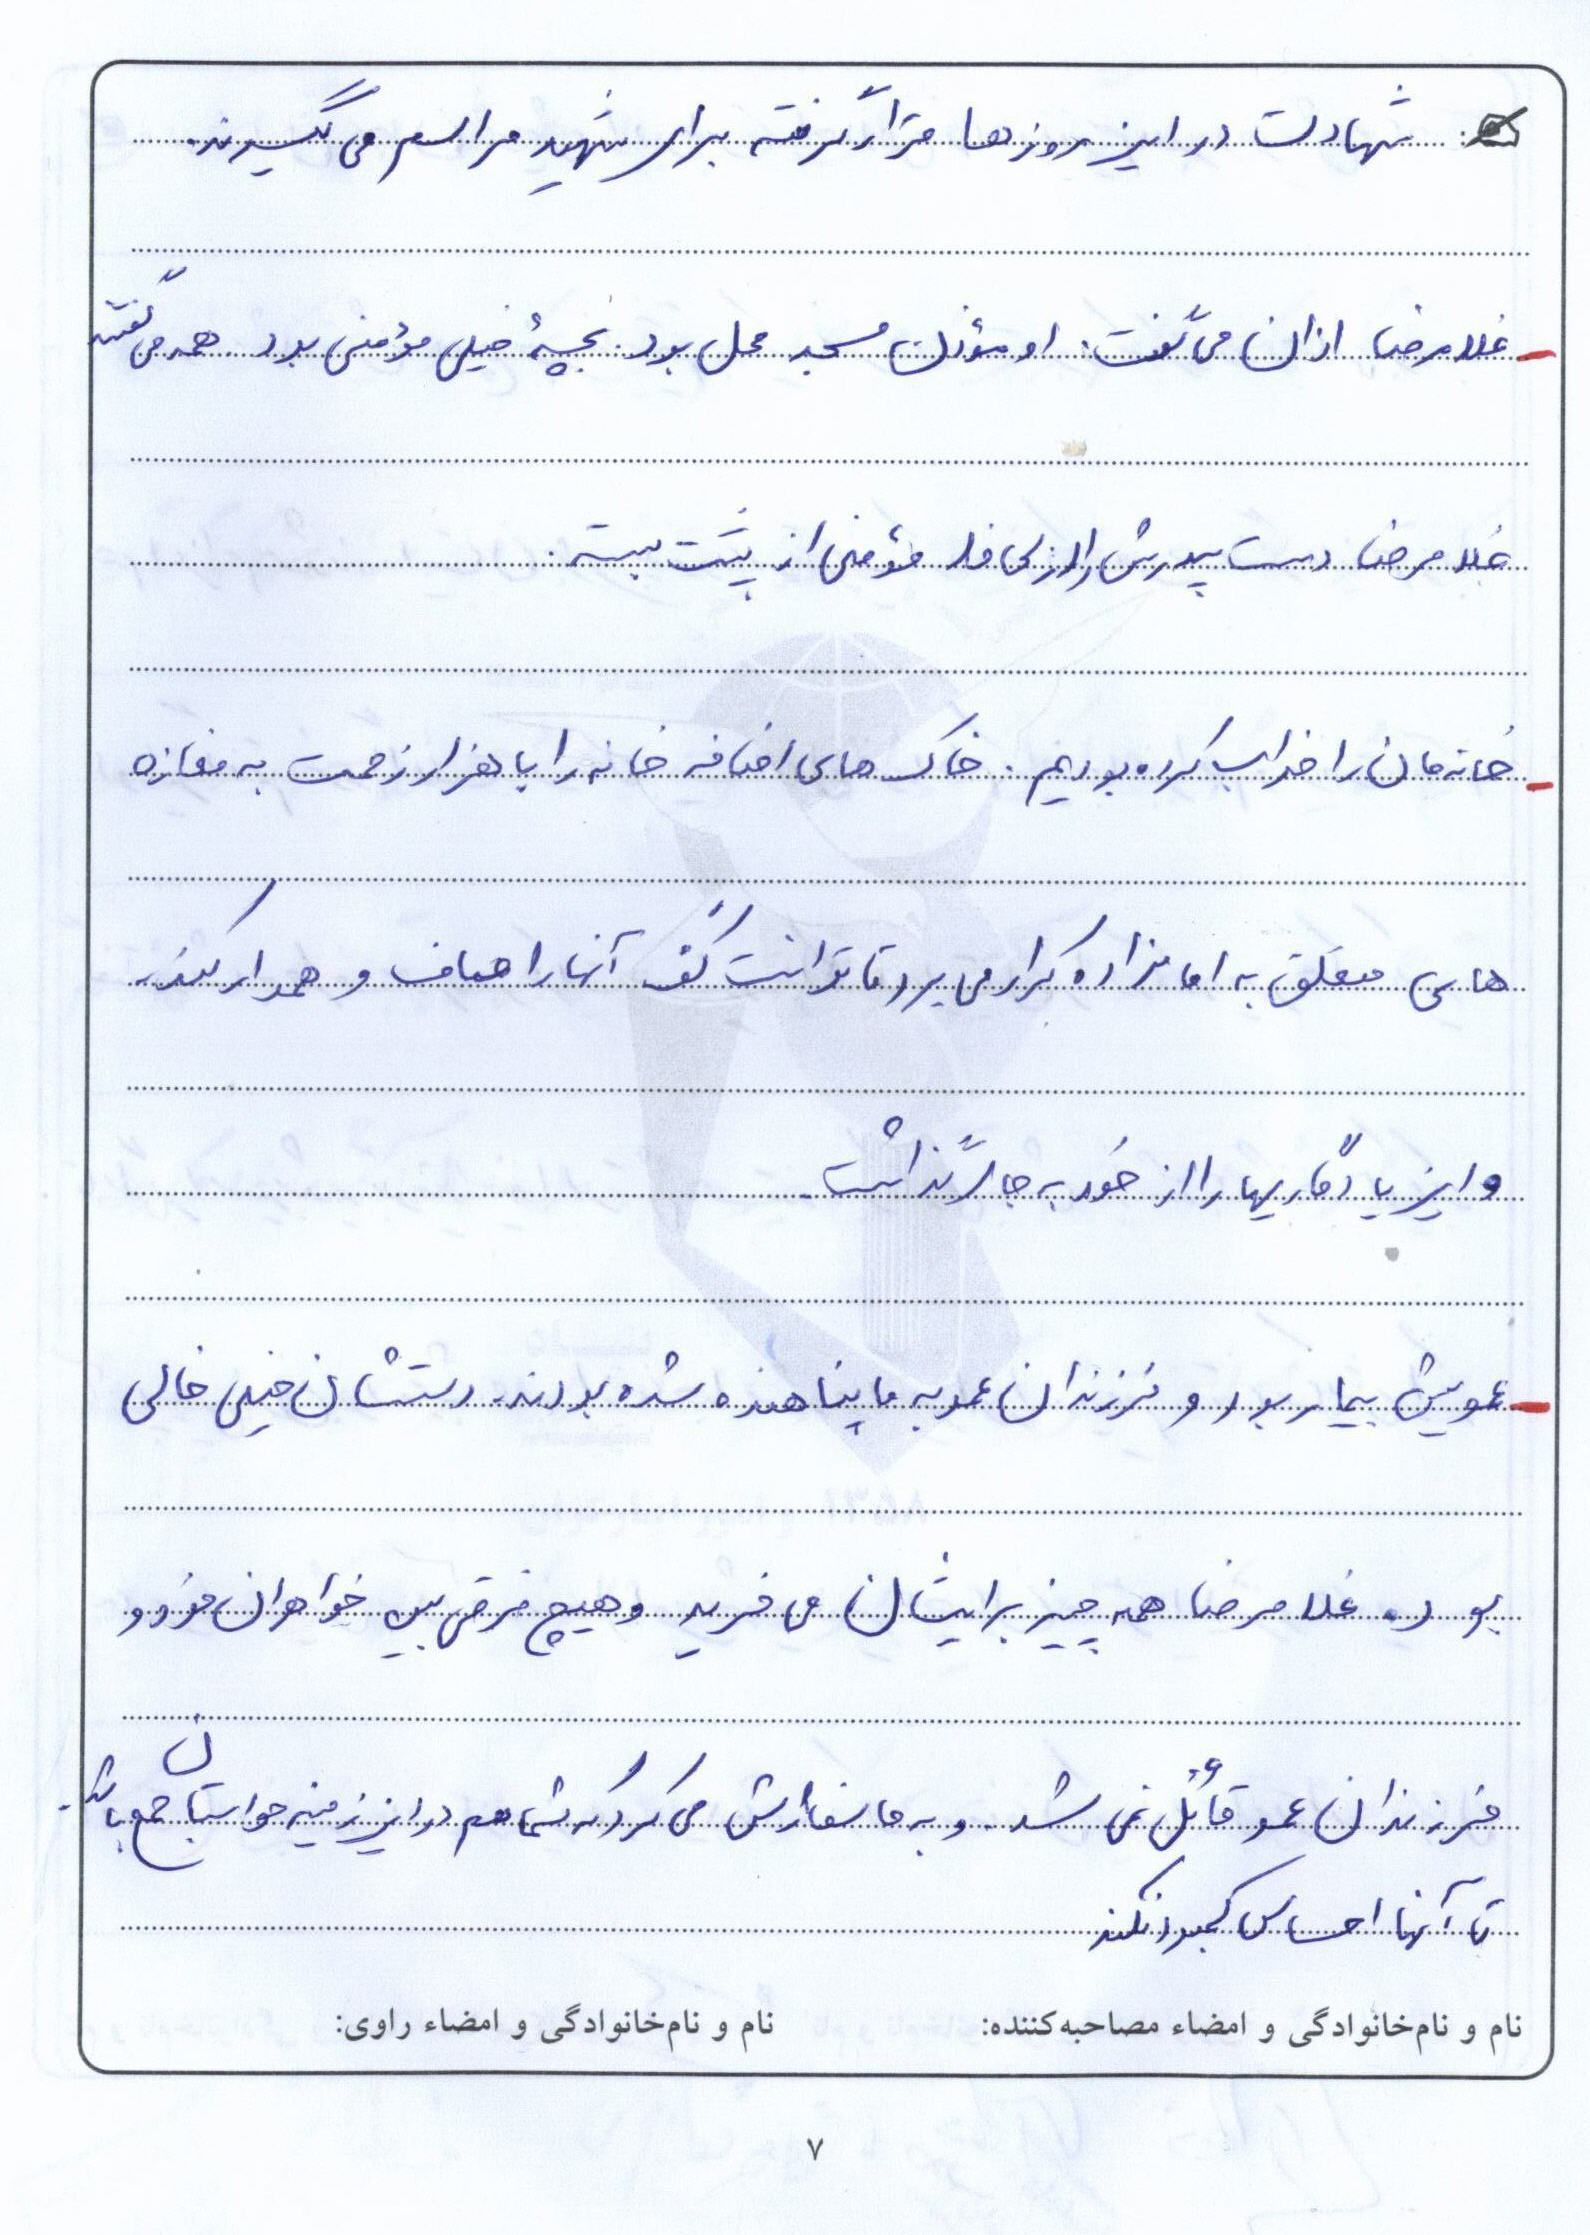 شهادت در این روزها قرار گرفته برای شهید مراسم می گیرند.
غلامرضا اذان می گفت. او مؤذن مسجد محل بود. بچهٔ خیلی مؤمنی بود همه می گفتند
غلامرضا دست پدرش را از لحاظ مؤمنی از پشت بسته.
خانه مان را خراب کرده بودیم. خاک های اضافه خانه را با هزار زحمت به مغازه
های متعلق به امامزاده می برد تا توانست کف آنها را صاف و هموار کند.
و این یادگاریها را از خود به جا گذاشت.
عمویش بیمار بود و فرزندان عمو به ما پناهنده شده بودند. دستشان خیلی خالی
بود. غلامرضا همه چیز برایشان می خرید و هیچ فرقی بین خواهران خود و
فرزندان عمو قائل نمی شد. و به ما سفارش می کرد که شما هم در این زمینه حواستان جمع باشد.
تا آنها احساس کمبود نکنند
نام و نام‌خانوادگی و امضاء مصاحبه‌کننده:
نام و نام‌خانوادگی و امضاء راوی:
۷